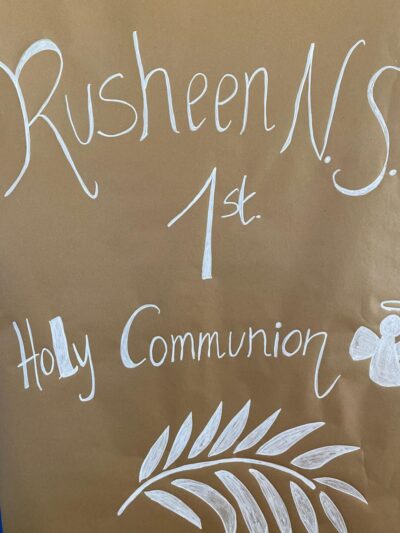 Rusheen N.S.
1st.
Holy Communion